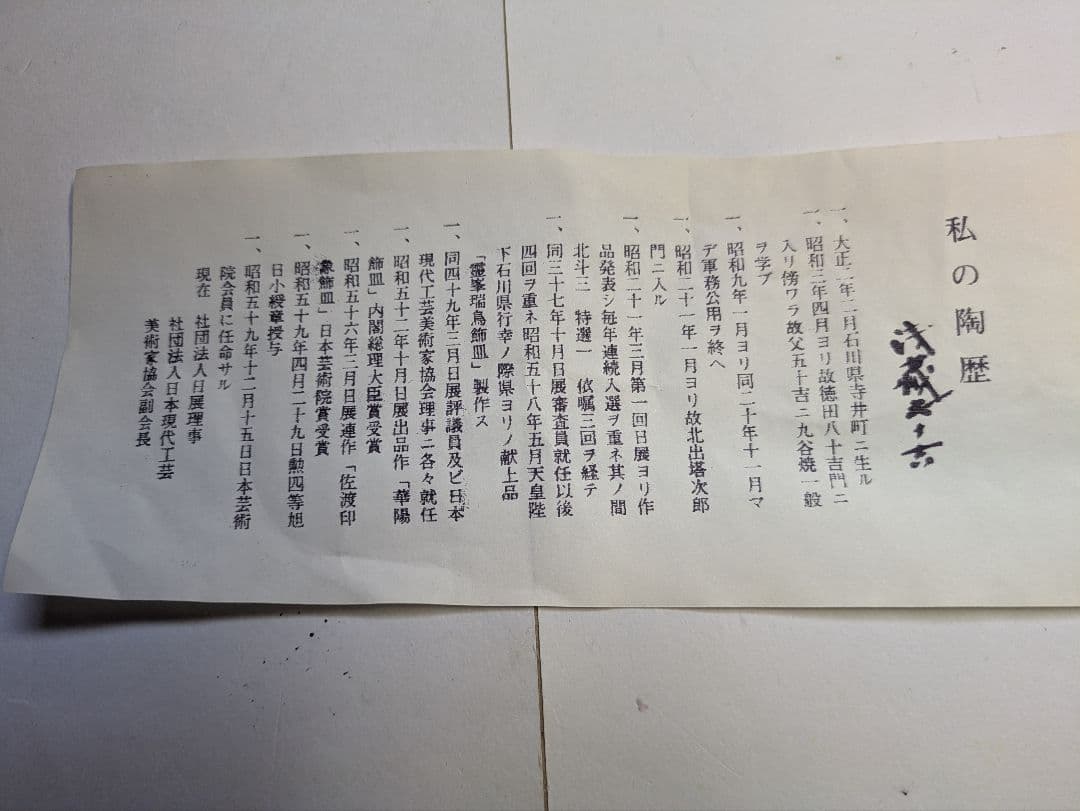 私の陶歴
浅蔵五十吉
一、大正二年二月石川県寺井町ニ生ル
一、昭和三年四月ヨリ故徳田八十吉門ニ
入リ傍ワラ故父五十吉ニ九谷焼一般
ヲ学ブ
一、昭和九年一月ヨリ同二十年十一月マ
デ軍務公用ヲ終ヘ
一、昭和二十一年一月ヨリ故北出塔次郎
門ニ入ル
一、昭和二十一年三月第一回日展ヨリ作
品発表シ毎年連続入選ヲ重ネ其ノ間
北斗三　特選一　依嘱三回ヲ経テ
一、同三十七年十月日展審査員就任以後
四回ヲ重ネ昭和五十八年五月天皇陛
下石川県行幸ノ際県ヨリノ献上品
「霊峯瑞鳥飾皿」製作ス
一、同四十九年三月日展評議員及ビ日本
現代工芸美術家協会理事ニ各々就任
一、昭和五十二年十月日展出品作「華陽
飾皿」内閣総理大臣賞受賞
一、昭和五十六年三月日展連作「佐渡印
象飾皿」日本芸術院賞受賞
一、昭和五十九年四月二十九日勲四等旭
日小綬章授与
一、昭和五十九年十二月十五日日本芸術
院会員に任命サル
現在　社団法人日展理事
社団法人日本現代工芸
美術家協会副会長